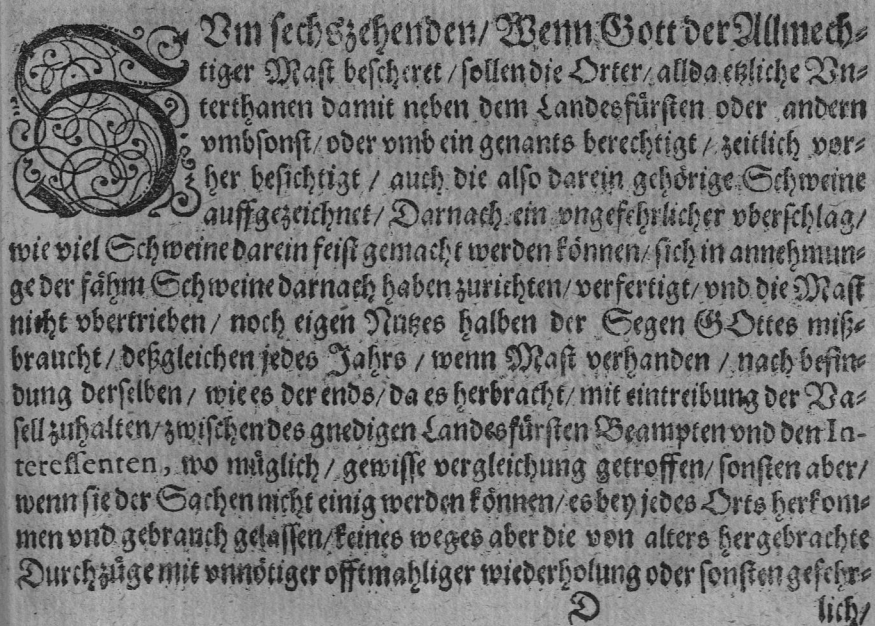 ZVm sechszehenden/ Wenn Gott der Allmech-
tiger Mast bescheret / sollen die Orter/ allda etzliche Vn-
terthanen damit neben dem Landesfürsten oder andern
vmbsonst/ oder vmb ein genants berechtigt / zeitlich vor-
her besichtigt / auch die also darein gehörige Schweine
auffgezeichnet/ Darnach ein vngefehrlicher vberschlag/
wie viel Schweine darein feist gemacht werden können/ sich in annehmun-
ge der fähm Schweine darnach haben zurichten/ verfertigt/ vnd die Mast
nicht vbertrieben / noch eigen Nutzes halben der Segen GOttes miß-
braucht / deßgleichen jedes Jahrs / wenn Mast verhanden / nach befin-
dung derselben / wie es der ends/ da es herbracht/ mit eintreibung der Va-
sell zuhalten/ zwischen des gnedigen Landesfürsten Beampten vnd den In-
teressenten, wo müglich / gewisse vergleichung getroffen/ sonsten aber/
wenn sie der Sachen nicht einig werden können/ es bey jedes Orts herkom-
men vnd gebrauch gelassen/ keines weges aber die von alters hergebrachte
Durchzüge mit vnnötiger offtmahliger wiederholung oder sonsten gefehr-
D lich/